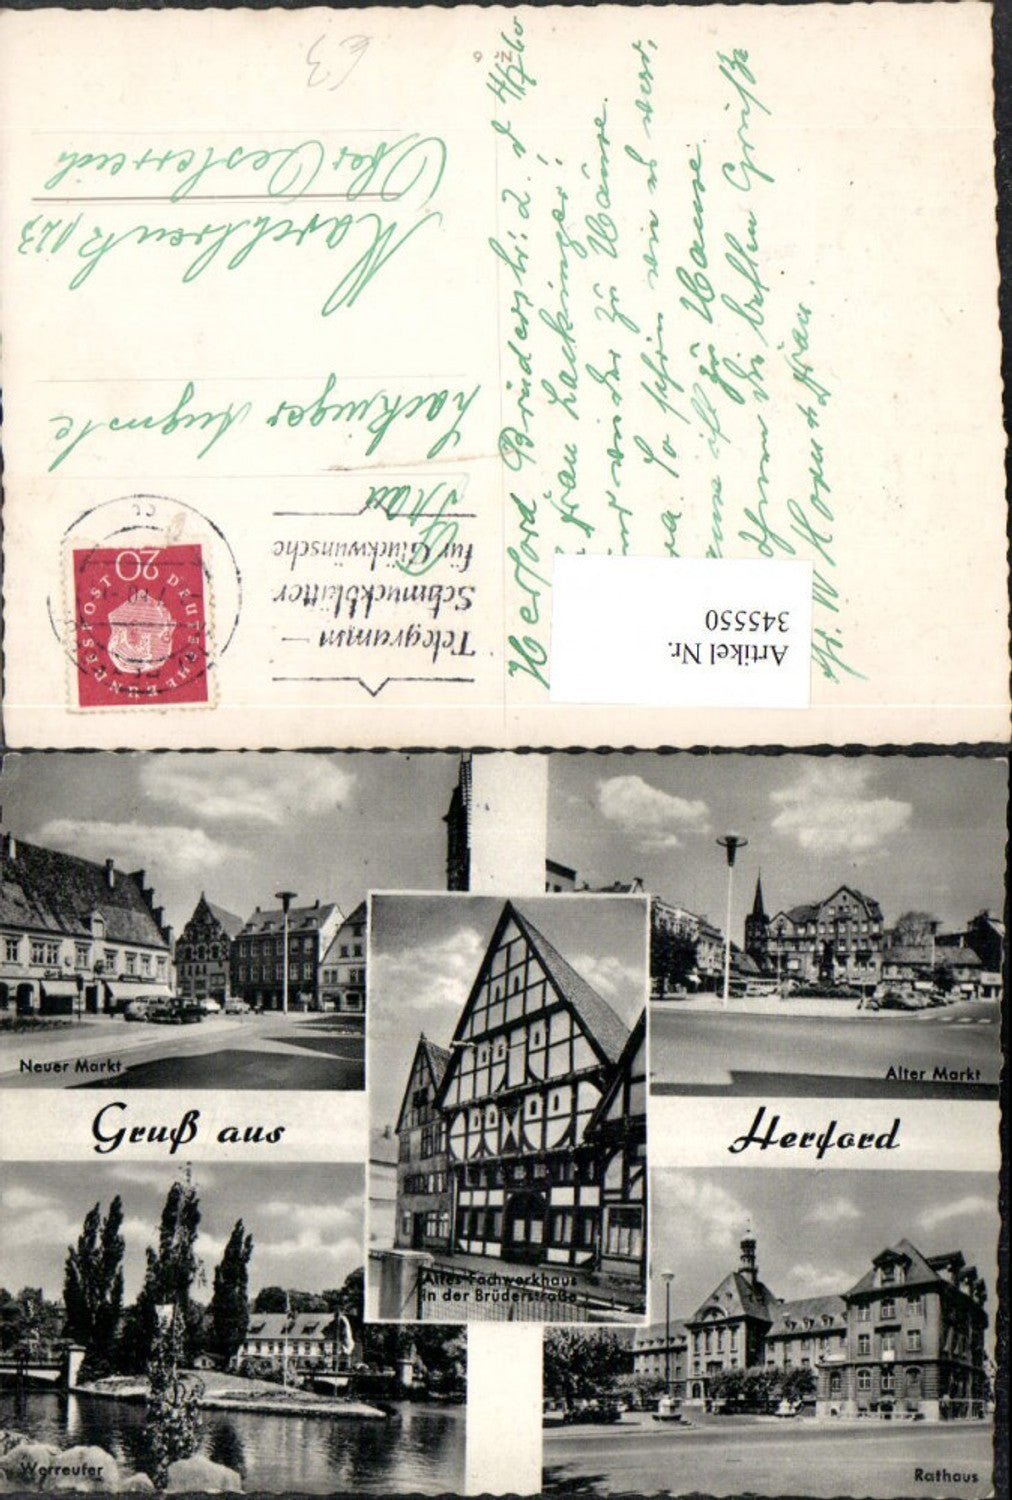 Nr. 6
63
Telegramm —
Schmuckblätter
für Glückwünsche
DEUTSCHE BUNDESPOST
20
Frau
Lackinger Auguste
Marchtrenk 123
Ober Oesterreich
Herford Brüderstr. 2. d 4/7 60
Frau Lackinger!
wieder zu Hause.
So schön wie es war,
ist zu Hause.
Ihnen die besten Grüße
Frau.
Artikel Nr.
345550
Neuer Markt
Alter Markt
Gruß aus
Herford
Altes Fachwerkhaus
in der Brüderstraße
Werreufer
Rathaus